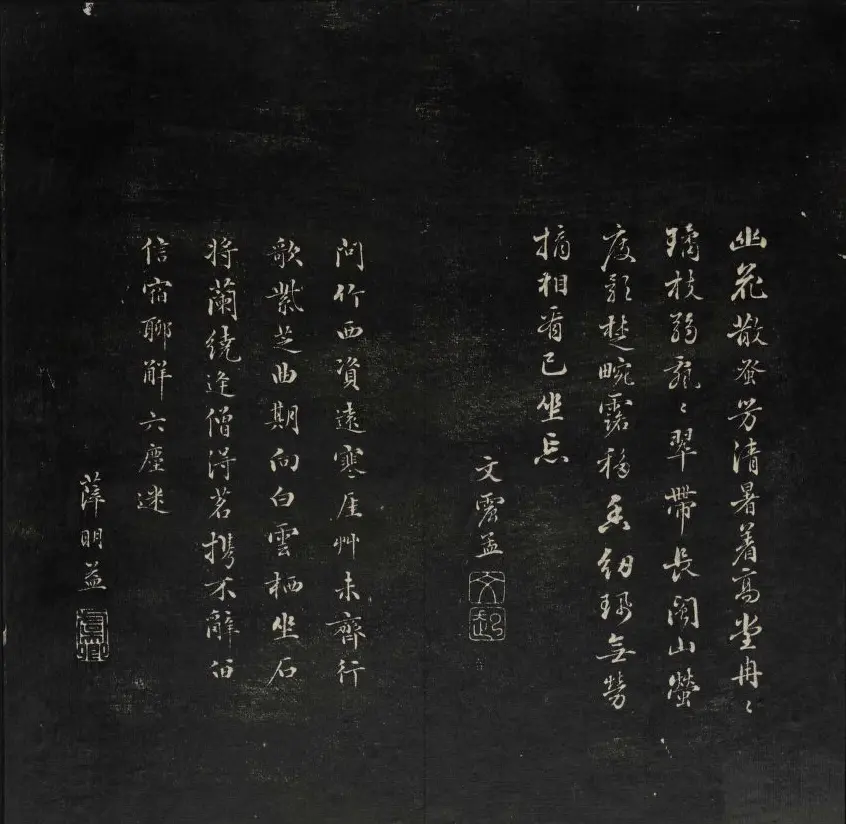 幽花散發芳清暑著高堂冉〻
璚枝弱亂〻翠帶長閣山螢
度影楚畹露移香紉珮無勞
摘相看已坐忘
文震孟
文起
問竹西資遠寒厓艸未齊行
歌紫芝曲期向白雲栖坐石
將蘭繞逢僧得茗攜不辭伯
信宿聊解六塵迷
薛明益